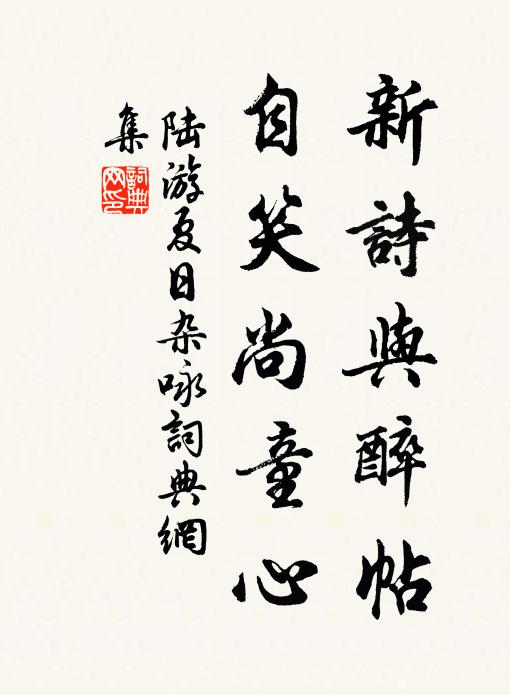 新詩與醉帖
自笑尚童心
陆游夏日杂咏詞典網
集
詞典
网印